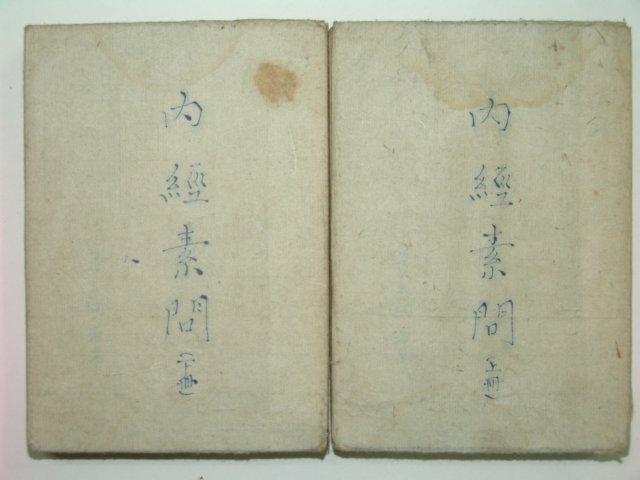 內經素問（下冊）
內經素問（上冊）